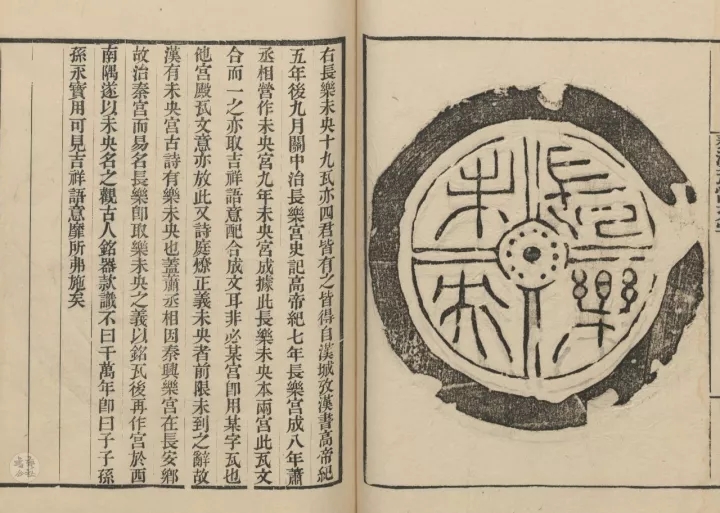 長樂
未央
右長樂未央十九瓦亦四君皆有之皆得自漢城攷漢書高帝紀
五年後九月關中治長樂宮史記高帝紀七年長樂宮成八年蕭
丞相營作未央宮九年未央宮成據此長樂未央本兩宮此瓦文
合而一之亦取吉祥語意配合成文耳非必某宮卽用某字瓦也
他宮殿瓦文意亦放此又詩庭燎正義未央者前限未到之辭故
漢有未央宮古詩有樂未央也蓋蕭丞相因秦興樂宮在長安鄉
故治秦宮而易名長樂卽取樂未央之義以銘瓦後再作宮於西
南隅遂以未央名之觀古人銘器款識不曰千萬年卽曰子子孫
孫永寶用可見吉祥語意靡所弗施矣